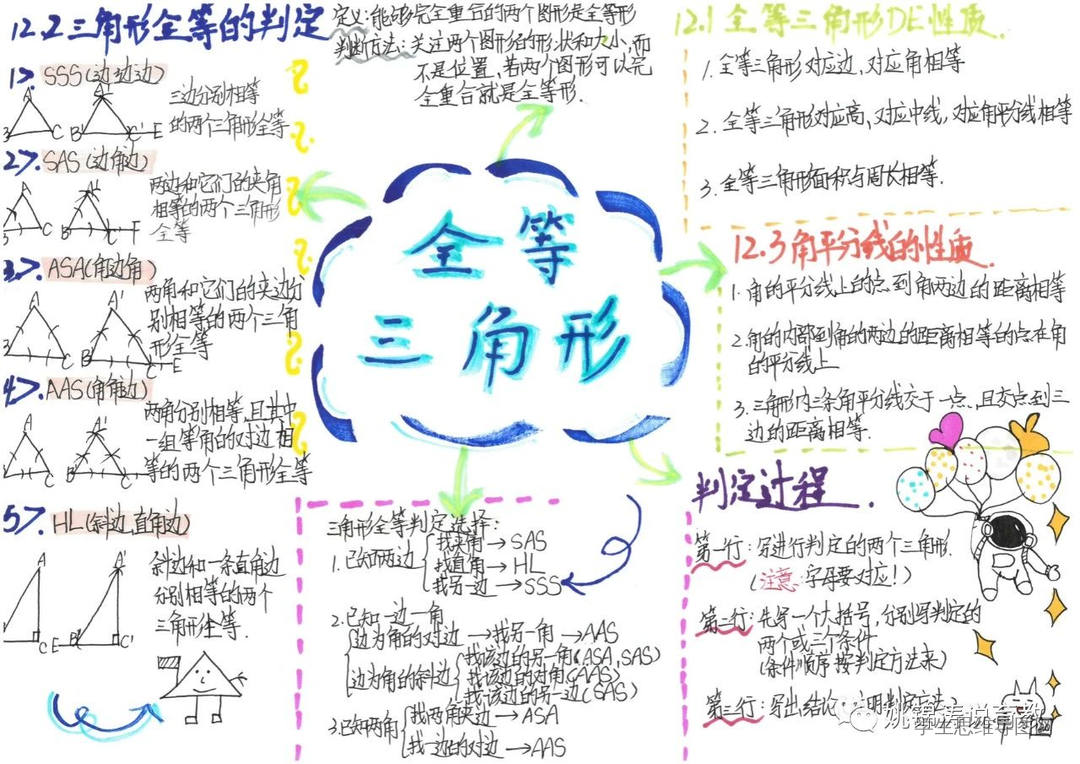 12.2三角形全等的判定
1>. SSS(边边边)
三边分别相等
的两个三角形全等
A
A'
B
C
B'
C'
E
2>. SAS(边角边)
两边和它们的夹角
相等的两个三角形
全等
A
A'
B
C
B'
F
3>. ASA(角边角)
两角和它们的夹边分
别相等的两个三角
形全等
A
A'
B
C
B'
C'
E
4>. AAS(角角边)
两角分别相等,且其中
一组等角的对边相
等的两个三角形全等
A
A'
B
C
B'
5>. HL(斜边,直角边)
斜边和一条直角边
分别相等的两个
三角形全等.
A
A'
C
E
B'
C'
定义:能够完全重合的两个图形是全等形
判断方法:关注两个图形的形状和大小,而
不是位置,若两个图形可以完
全重合就是全等形.
全等
三角形
12.1全等三角形DE性质.
1.全等三角形对应边,对应角相等
2.全等三角形对应高、对应中线,对应角平分线相等
3.全等三角形面积与周长相等.
12.3角平分线的性质.
1.角的平分线上的点到角两边的距离相等
2.角的内部到角的两边的距离相等的点在角
的平分线上
3.三角形内三条角平分线交于一点、且交点到三
边的距离相等.
三角形全等判定选择:
1.已知两边
找夹角→SAS
找直角→HL
找另一边→SSS
2.已知一边一角
边为角的对边→找另一角→AAS
边为角的斜边
找该边的另一角(ASA,SAS)
找该边的对角(AAS)
找该边的另一边(SAS)
3.已知两角
找两角夹边→ASA
找一边的对边→AAS
判定过程.
第一行:写进行判定的两个三角形.
(注意:字母要对应!)
第二行:先写一个大括号,分别写判定的
两个或三个条件
(条件顺序按判定方法来)
第三行:写出结论
判定方法
学生思维导图